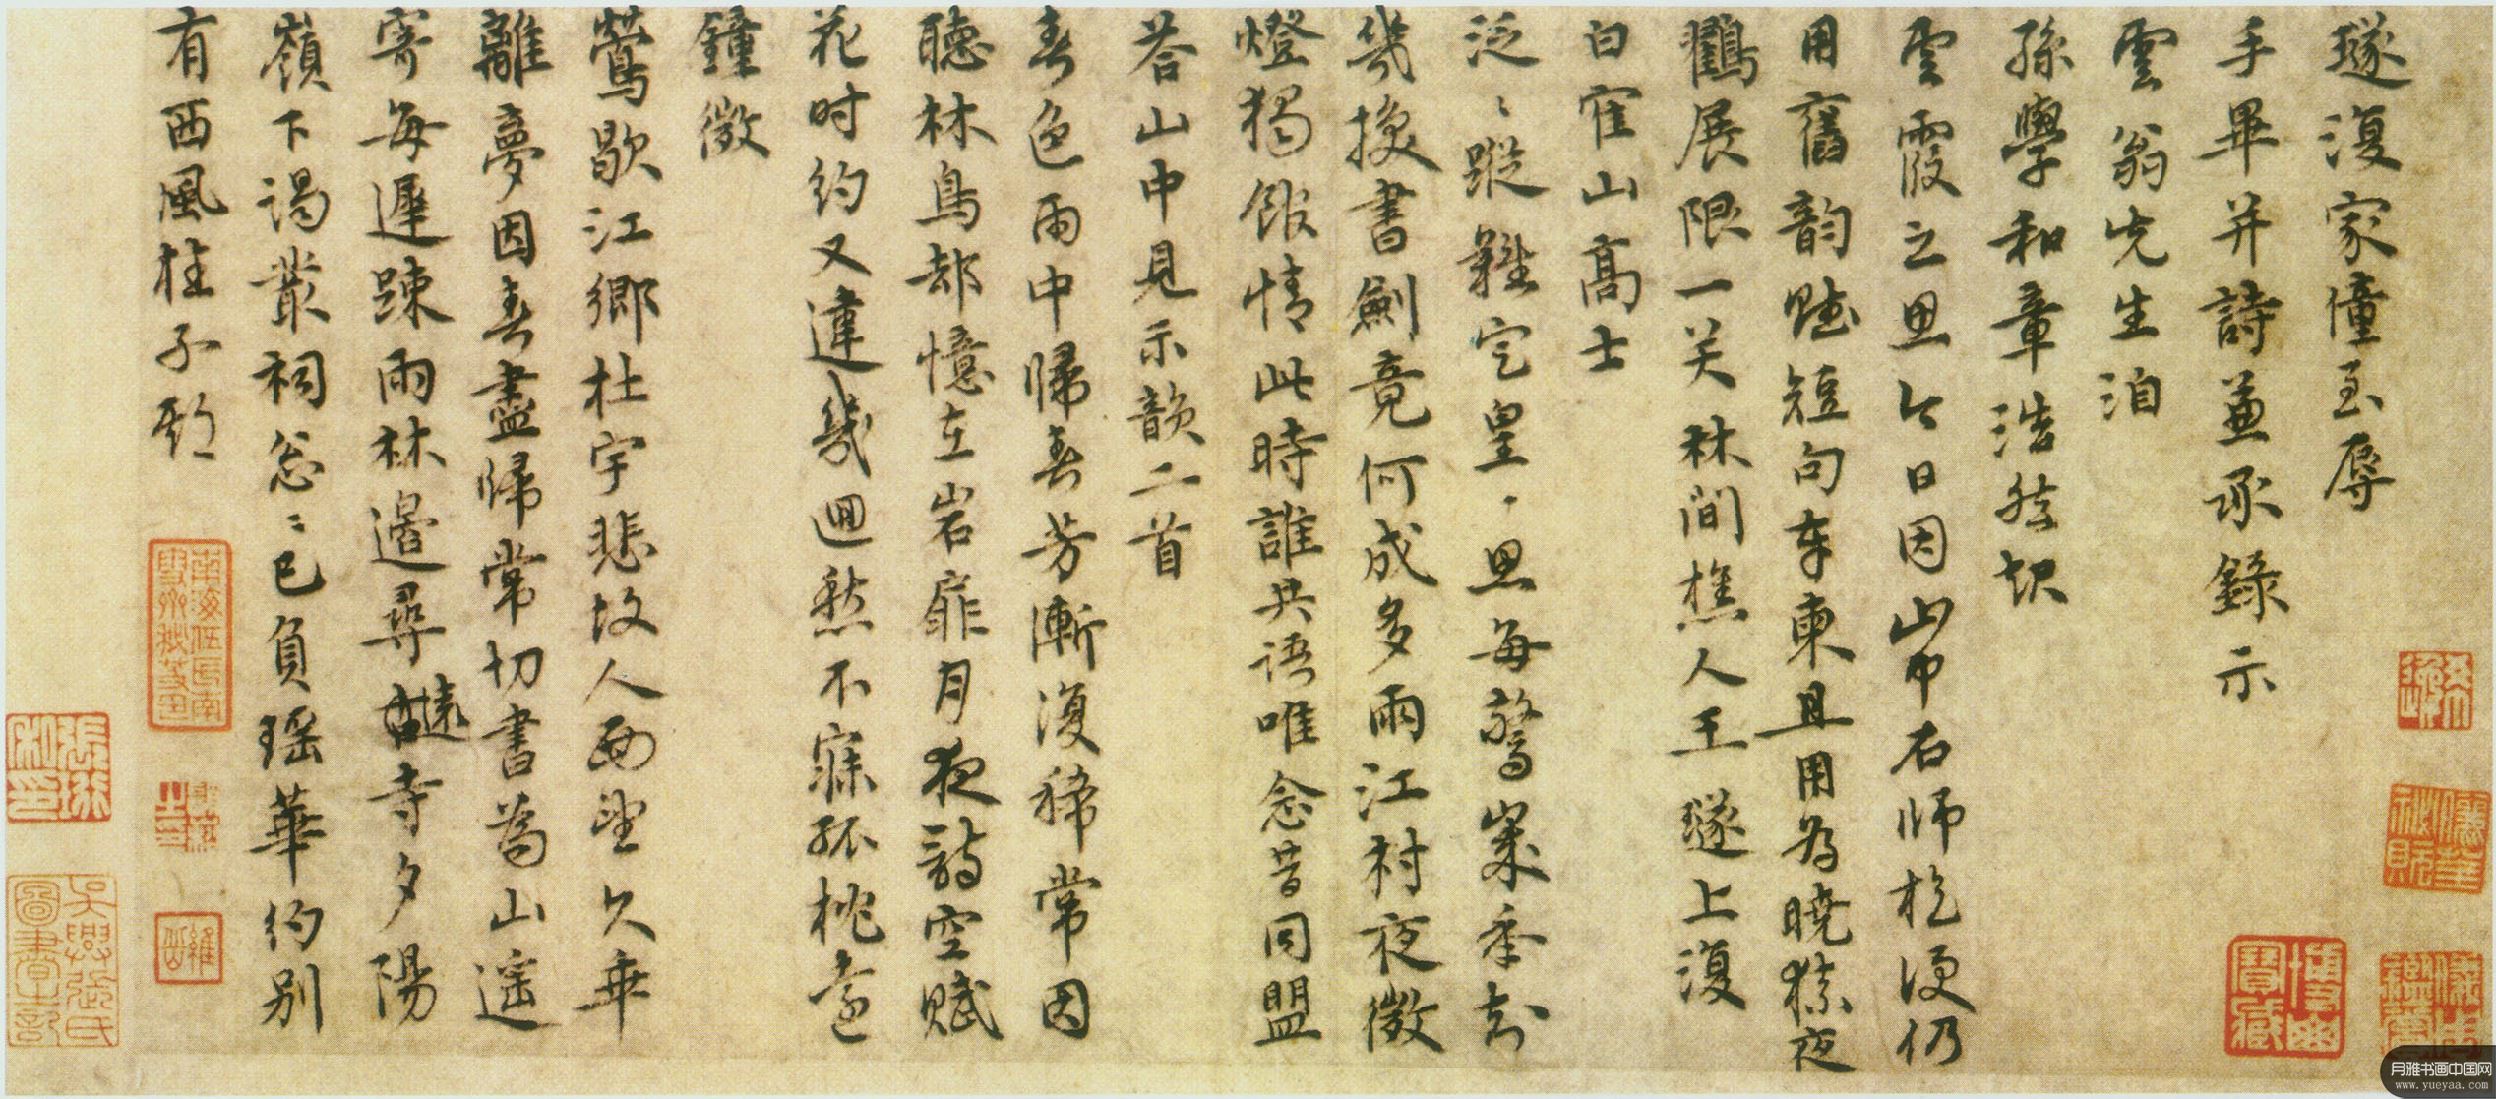 璲復家僮至辱
手畢并詩兼承錄示
雲翁先生洎
孫學和章浩然起
雲霞之思今日因山中石師稅便仍
用舊韵賦短句奉柬且用為曉猿夜
鶴展限一笑林間樵人王璲上復
白雀山高士
泛〻蹤難定皇〻思每驚業希剞
幾換書劍竟何成多雨江村夜微
燈獨館情此時誰共語唯念昔同盟
答山中見示韻二首
春色雨中歸春芳漸復稀常因
聽林鳥却憶在岩扉月夜詩空賦
花时約又違幾迴愁不寐孤枕遠
鐘微
鶯歇江鄉杜宇悲故人西望久乖
離夢因春盡歸常切書為山遥
寄每遲踈雨林邉尋寺夕陽
嶺下謁叢祠怱〻已負瑶華約别
有西風桂子期
月雅书画中国网
www.yueyaa.com